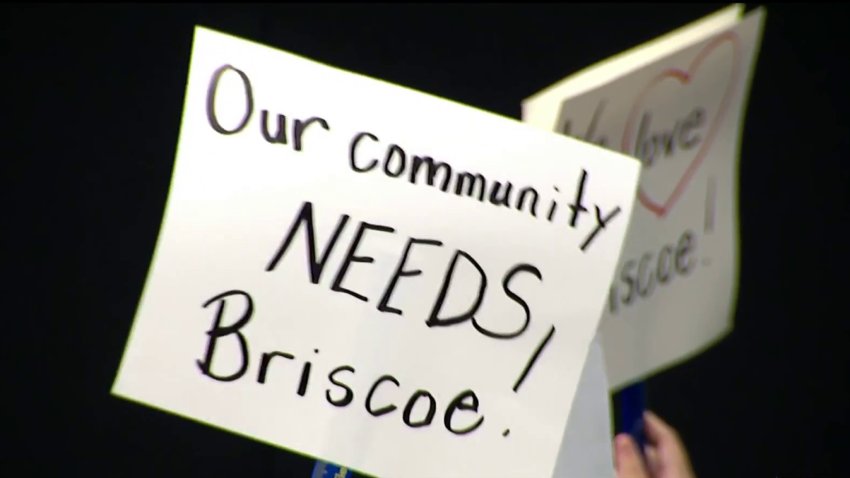 Our community
NEEDS
Briscoe!
We love
iscoe!